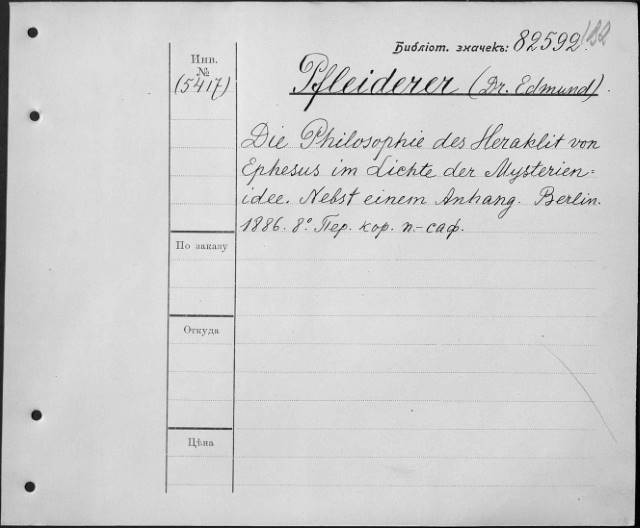 Библіот. значекъ: 82592/122
Инв.
№
(5417)
Pfleiderer (Dr. Edmund).
Die Philosophie des Heraklit von
Ephesus im Lichte der Mysterien=
idee. Nebst einem Anhang. Berlin.
1886. 8° Пер. кор. п.-саф.
По заказу
Откуда
Цѣна